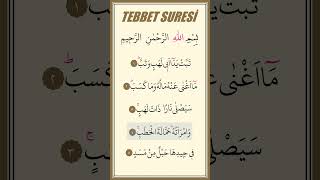 TEBBET SURESİ
بِسْمِ اللّٰهِ الرَّحْمٰنِ الرَّحٖيمِ
تَبَّتْ يَدَٓا اَبٖي لَهَبٍ وَتَبَّ
مَٓا اَغْنٰى عَنْهُ مَالُهُ وَمَا كَسَبَ
سَيَصْلٰى نَارًا ذَاتَ لَهَبٍ
وَامْرَاَتُهُ حَمَّالَةَ الْحَطَبِ
فٖي جٖيدِهَا حَبْلٌ مِنْ مَسَدٍ